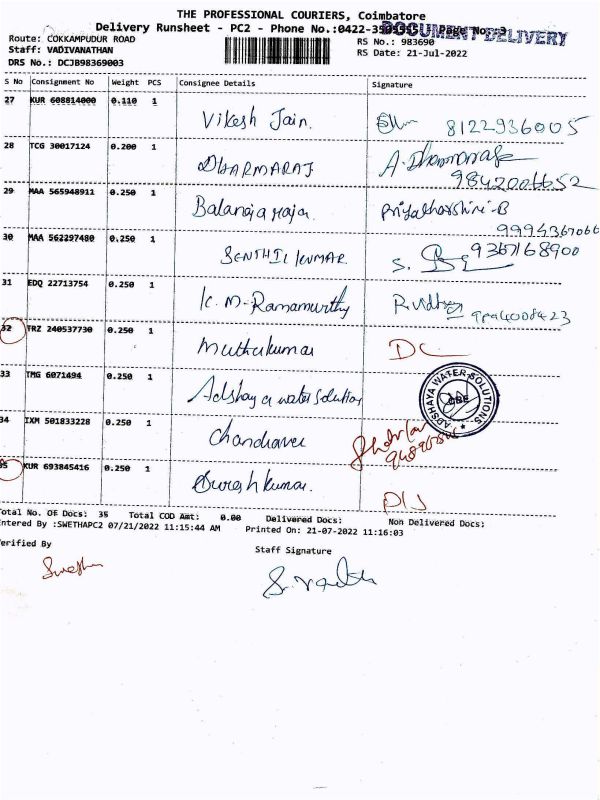 THE PROFESSIONAL COURIERS, Coimbatore
Delivery Runsheet - PC2 - Phone No.:0422- Page No.
DOCUMENT DELIVERY
Route: COKKAMPUDUR ROAD RS No.: 983690
Staff: VADIVANATHAN RS Date: 21-Jul-2022
DRS No.: DCJB98369003
S No Consignment No Weight PCS Consignee Details Signature
27 KUR 608814000 0.110 1 Vikesh Jain. 8122936005
28 TCG 30017124 0.200 1 DHARMARAJ A.Dharmaraj
9842006652
29 MAA 565948911 0.250 1 Balanagaraja Priyadharshini-B
9994367066
30 MAA 562297480 0.250 1 SENTHIL KUMAR S. 9367168900
31 EDQ 22713754 0.250 1 K.M-Ramamurthy R.Vidhya
32 TRZ 240537730 0.250 1 Muthukumar DC
33 TMG 6071494 0.250 1 Adshaya water Solution ADSHAYA WATER SOLUTIONS CBE
34 IXM 501833228 0.250 1
35 KUR 693845416 0.250 1 Sureshkumar.
Total No. OF Docs: 35 Total COD Amt: 0.00 Delivered Docs: Non Delivered Docs:
Entered By :SWETHAPC2 07/21/2022 11:15:44 AM Printed On: 21-07-2022 11:16:03
Verified By Staff Signature
Swetha